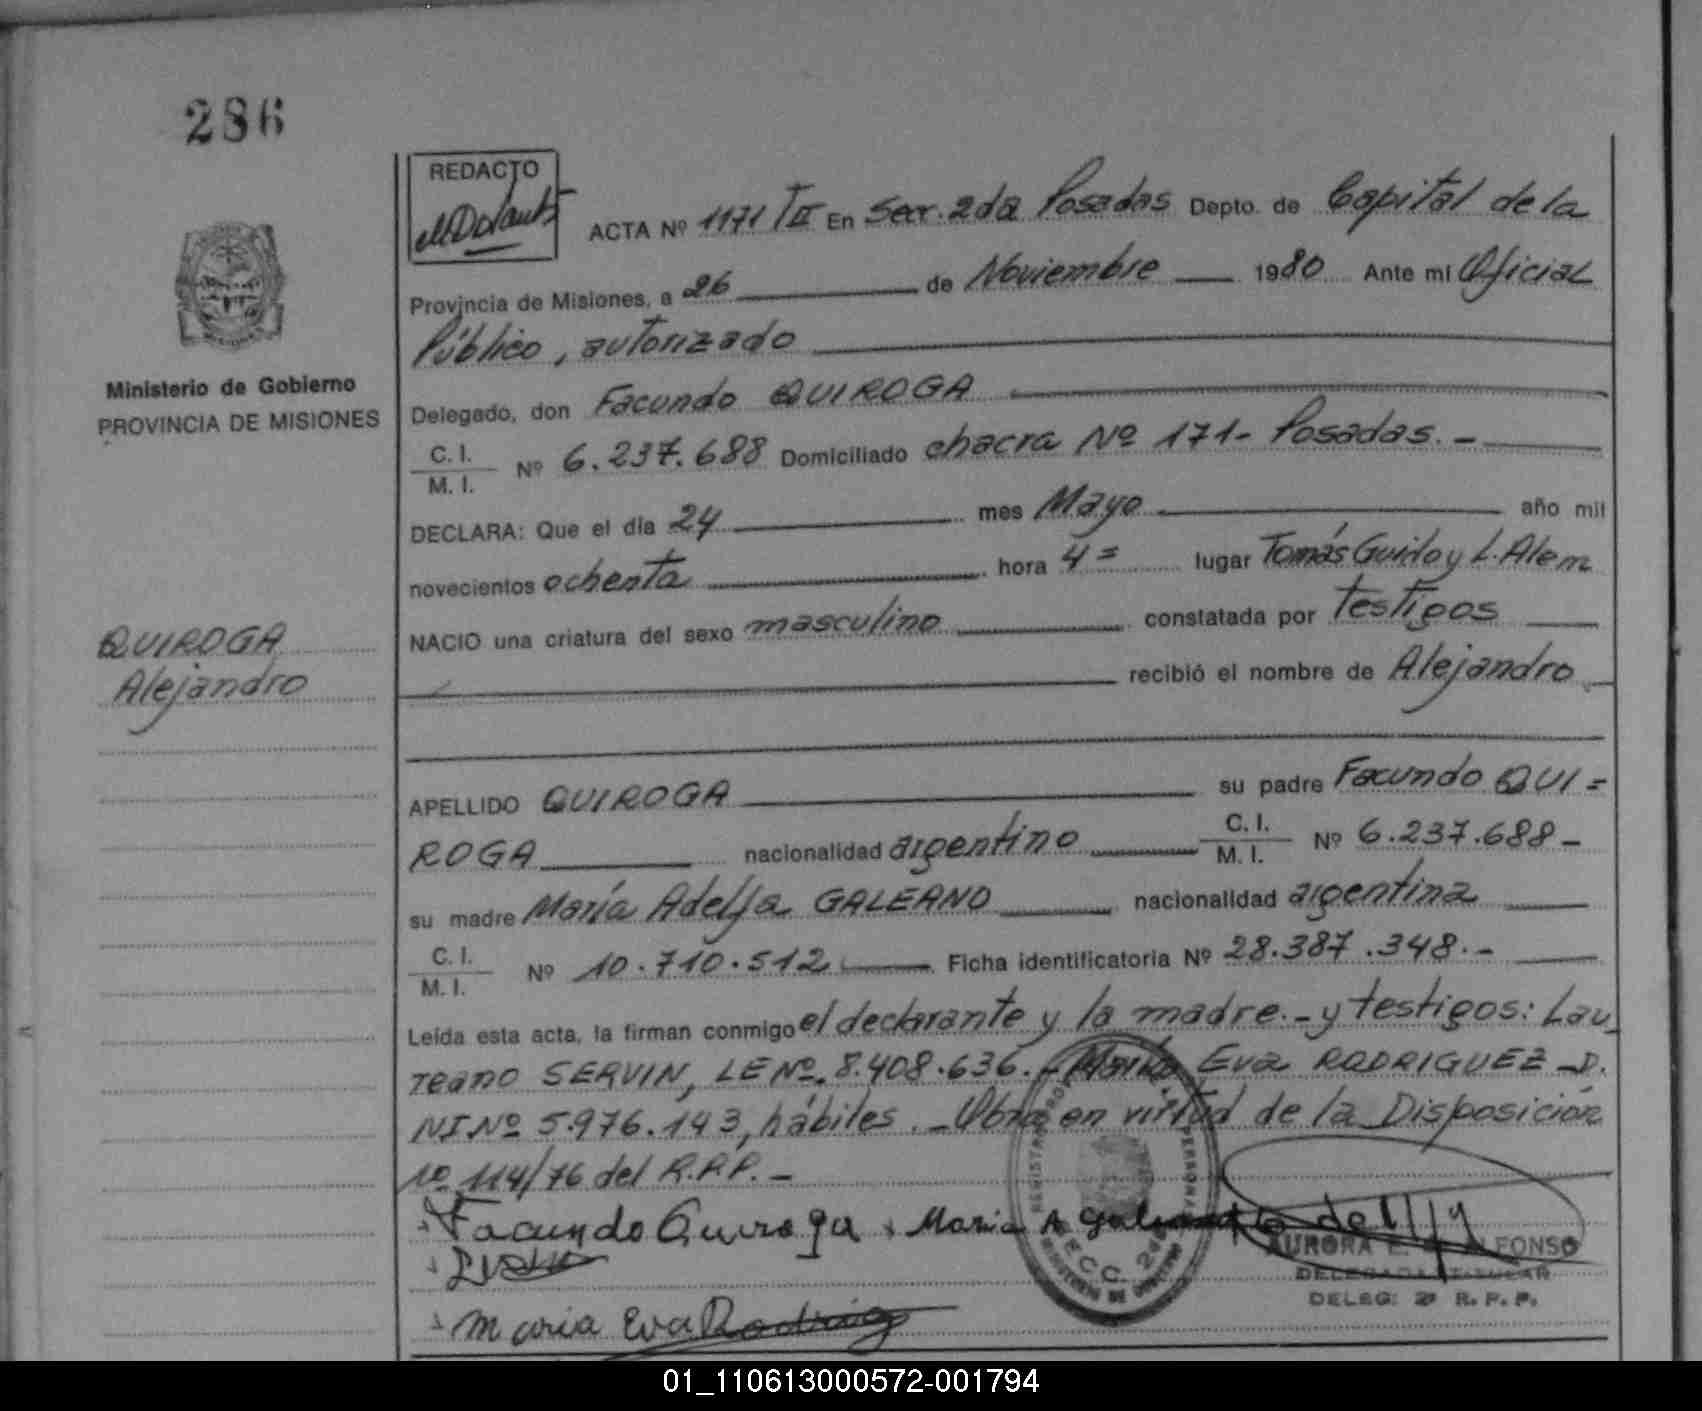 286
REDACTO
ACTA Nº 1171 TII En Secc. 2da Posadas Depto. de Capital de la
Provincia de Misiones, a 26 de Noviembre 1980 Ante mí Oficial
Público, autorizado
Ministerio de Gobierno
PROVINCIA DE MISIONES
Delegado, don Facundo QUIROGA
C. I.
M. I.
Nº 6.237.688 Domiciliado chacra Nº 171- Posadas.-
DECLARA: Que el día 24 mes Mayo año mil
novecientos ochenta hora 4= lugar Tomás Guido y L. Alem
NACIO una criatura del sexo masculino constatada por testigos
QUIROGA
Alejandro
recibió el nombre de Alejandro
APELLIDO QUIROGA su padre Facundo QUI=
ROGA nacionalidad argentino C. I. M. I. Nº 6.237.688-
su madre María Adelfa GALEANO nacionalidad argentina
C. I.
M. I.
Nº 10.710.512 Ficha identificatoria Nº 28.387.348.-
Leída esta acta, la firman conmigo el declarante y la madre.- y testigos: Lau
reano SERVIN, LE Nº 8.408.636.- María Eva RODRIGUEZ -D.
NI Nº 5.976.143, hábiles.- Obra en virtud de la Disposición
nº 114/76 del R.P.P.-
Facundo Quiroga Maria A Galeano de
Maria Eva Rodrig
AURORA E. ALFONSO
DELEGADA TITULAR
DELEG: 2ª R. P. P.
SECC. 2da
01_110613000572-001794